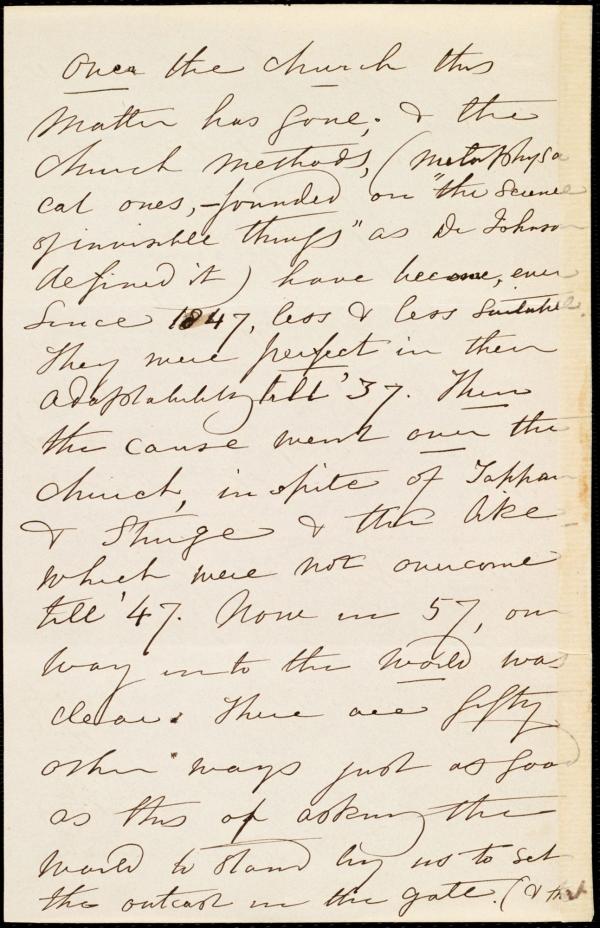 Over the church this
matter has gone; & the
church methods, (metaphysi
cal ones,—founded on "the Science
of invisible things" as Dr Johnson
defined it) have become, ever
since 1847, less & less suitable.
They were perfect in their
adaptability till '37. Then
the cause went over the
church, in spite of Tappan
& Sturge & the like
which were not overcome
till '47. Now in 57, our
way into the world was
clear. There are fifty
other ways just as good
as this of asking the
world to stand by us to set
the outcast in the gate. (& that